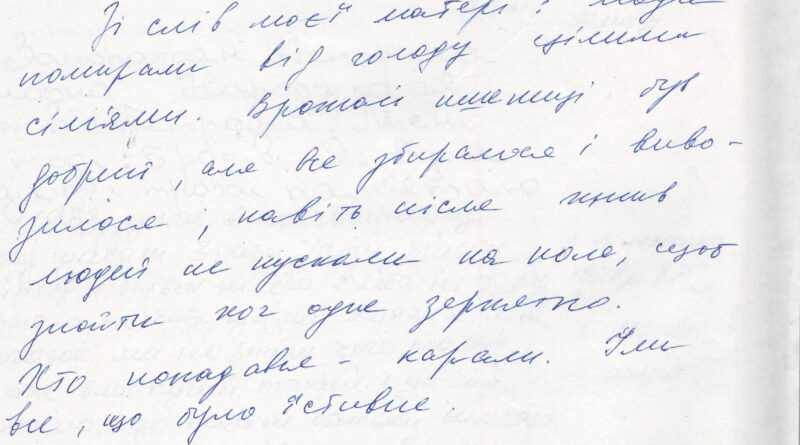 Зі слів моєї матері: люди
помирали від голоду цілими
сім'ями. Врожай пшениці був
добрий, але все збиралося і виво-
зилося, навіть після жнив
людей не пускали на поле, щоб
знайти хоч одне зернятко.
Хто попадавсь - карали. Їли
все, що було їстивне.